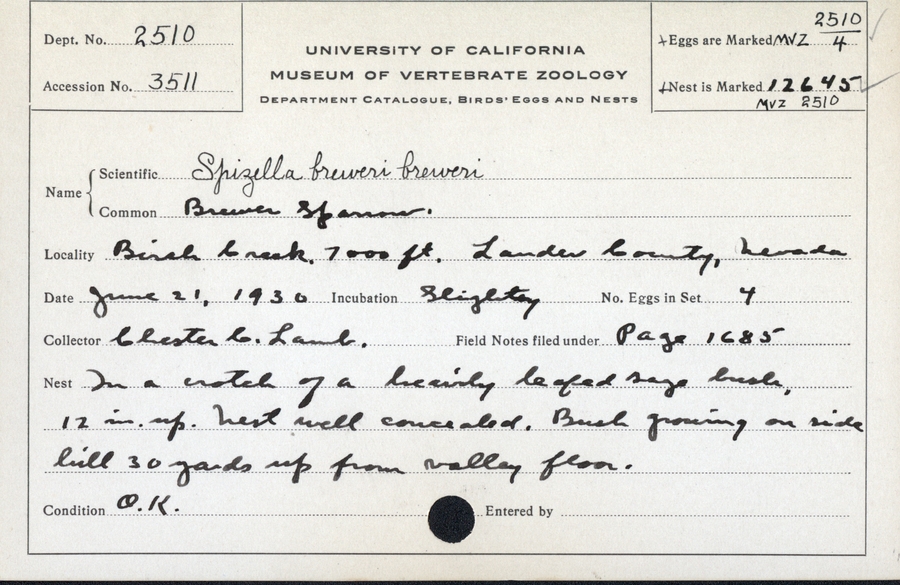 Dept. No. 2510
Accession No. 3511
UNIVERSITY OF CALIFORNIA
MUSEUM OF VERTEBRATE ZOOLOGY
DEPARTMENT CATALOGUE, BIRDS' EGGS AND NESTS
Eggs are Marked MVZ 2510/4
Nest is Marked 12645
MVZ 2510
Name
Scientific Spizella breweri breweri
Common Brewer Sparrow.
Locality Birch Creek, 7000 ft. Lander County, Nevada
Date June 21, 1930 Incubation Slightly No. Eggs in Set 4
Collector Chester C. Lamb. Field Notes filed under Page 1685
Nest In a crotch of a heavily leafed sage bush,
12 in. up. Nest well concealed. Bush growing on side
hill 30 yards up from valley floor.
Condition O.K. Entered by